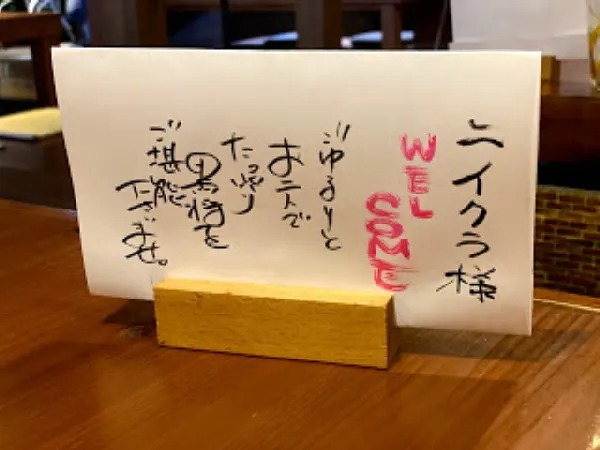 ニイクラ様
WEL
COME
ごゆるりと
お二人で
たっぷり
黒將を
ご堪能
下さいませ。